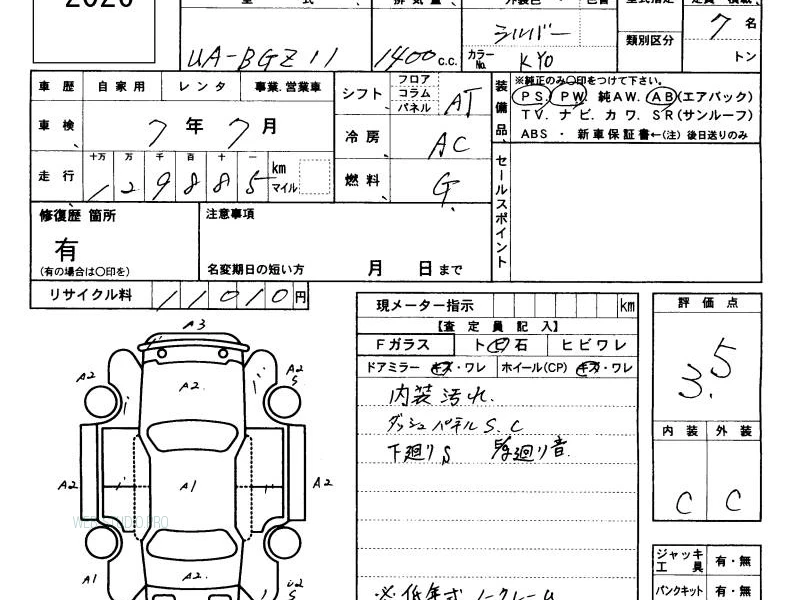 2026
型 式 排気量 外装色 色替 型式指定 定員・積載
UA-BGZ11 1400c.c. シルバー カラーNo. KY0 類別区分 7名 トン
車歴 自家用 レンタ 事業.営業車
シフト フロア コラム パネル AT
装備品 ※純正のみ○印をつけて下さい。
PS. PW. 純AW. AB(エアバック)
TV. ナビ. カワ. SR(サンルーフ)
ABS ・ 新車保証書←(注) 後日送りのみ
車検 7年7月
冷房 AC
走行 十万 万 千 百 十 一 129885 km マイル
燃料 G.
セールスポイント
修復歴 箇所
有
(有の場合は○印を)
注意事項
名変期日の短い方 月 日まで
リサイクル料 11010円
現メーター指示 km
【査定員記入】
Fガラス ト ビ 石 ヒビワレ
ドアミラー キズ・ワレ ホイール(CP) キズ・ワレ
内装汚れ.
ダッシュパネルS.C
下廻りS 廻り音.
※低年式ノークレーム
評価点
3.5
内装 外装
C C
ジャッキ 工具 有・無
パンクキット 有・無
A3
A2
A2
A2
S
A2
A1
A2
WEB
A1
A2
S